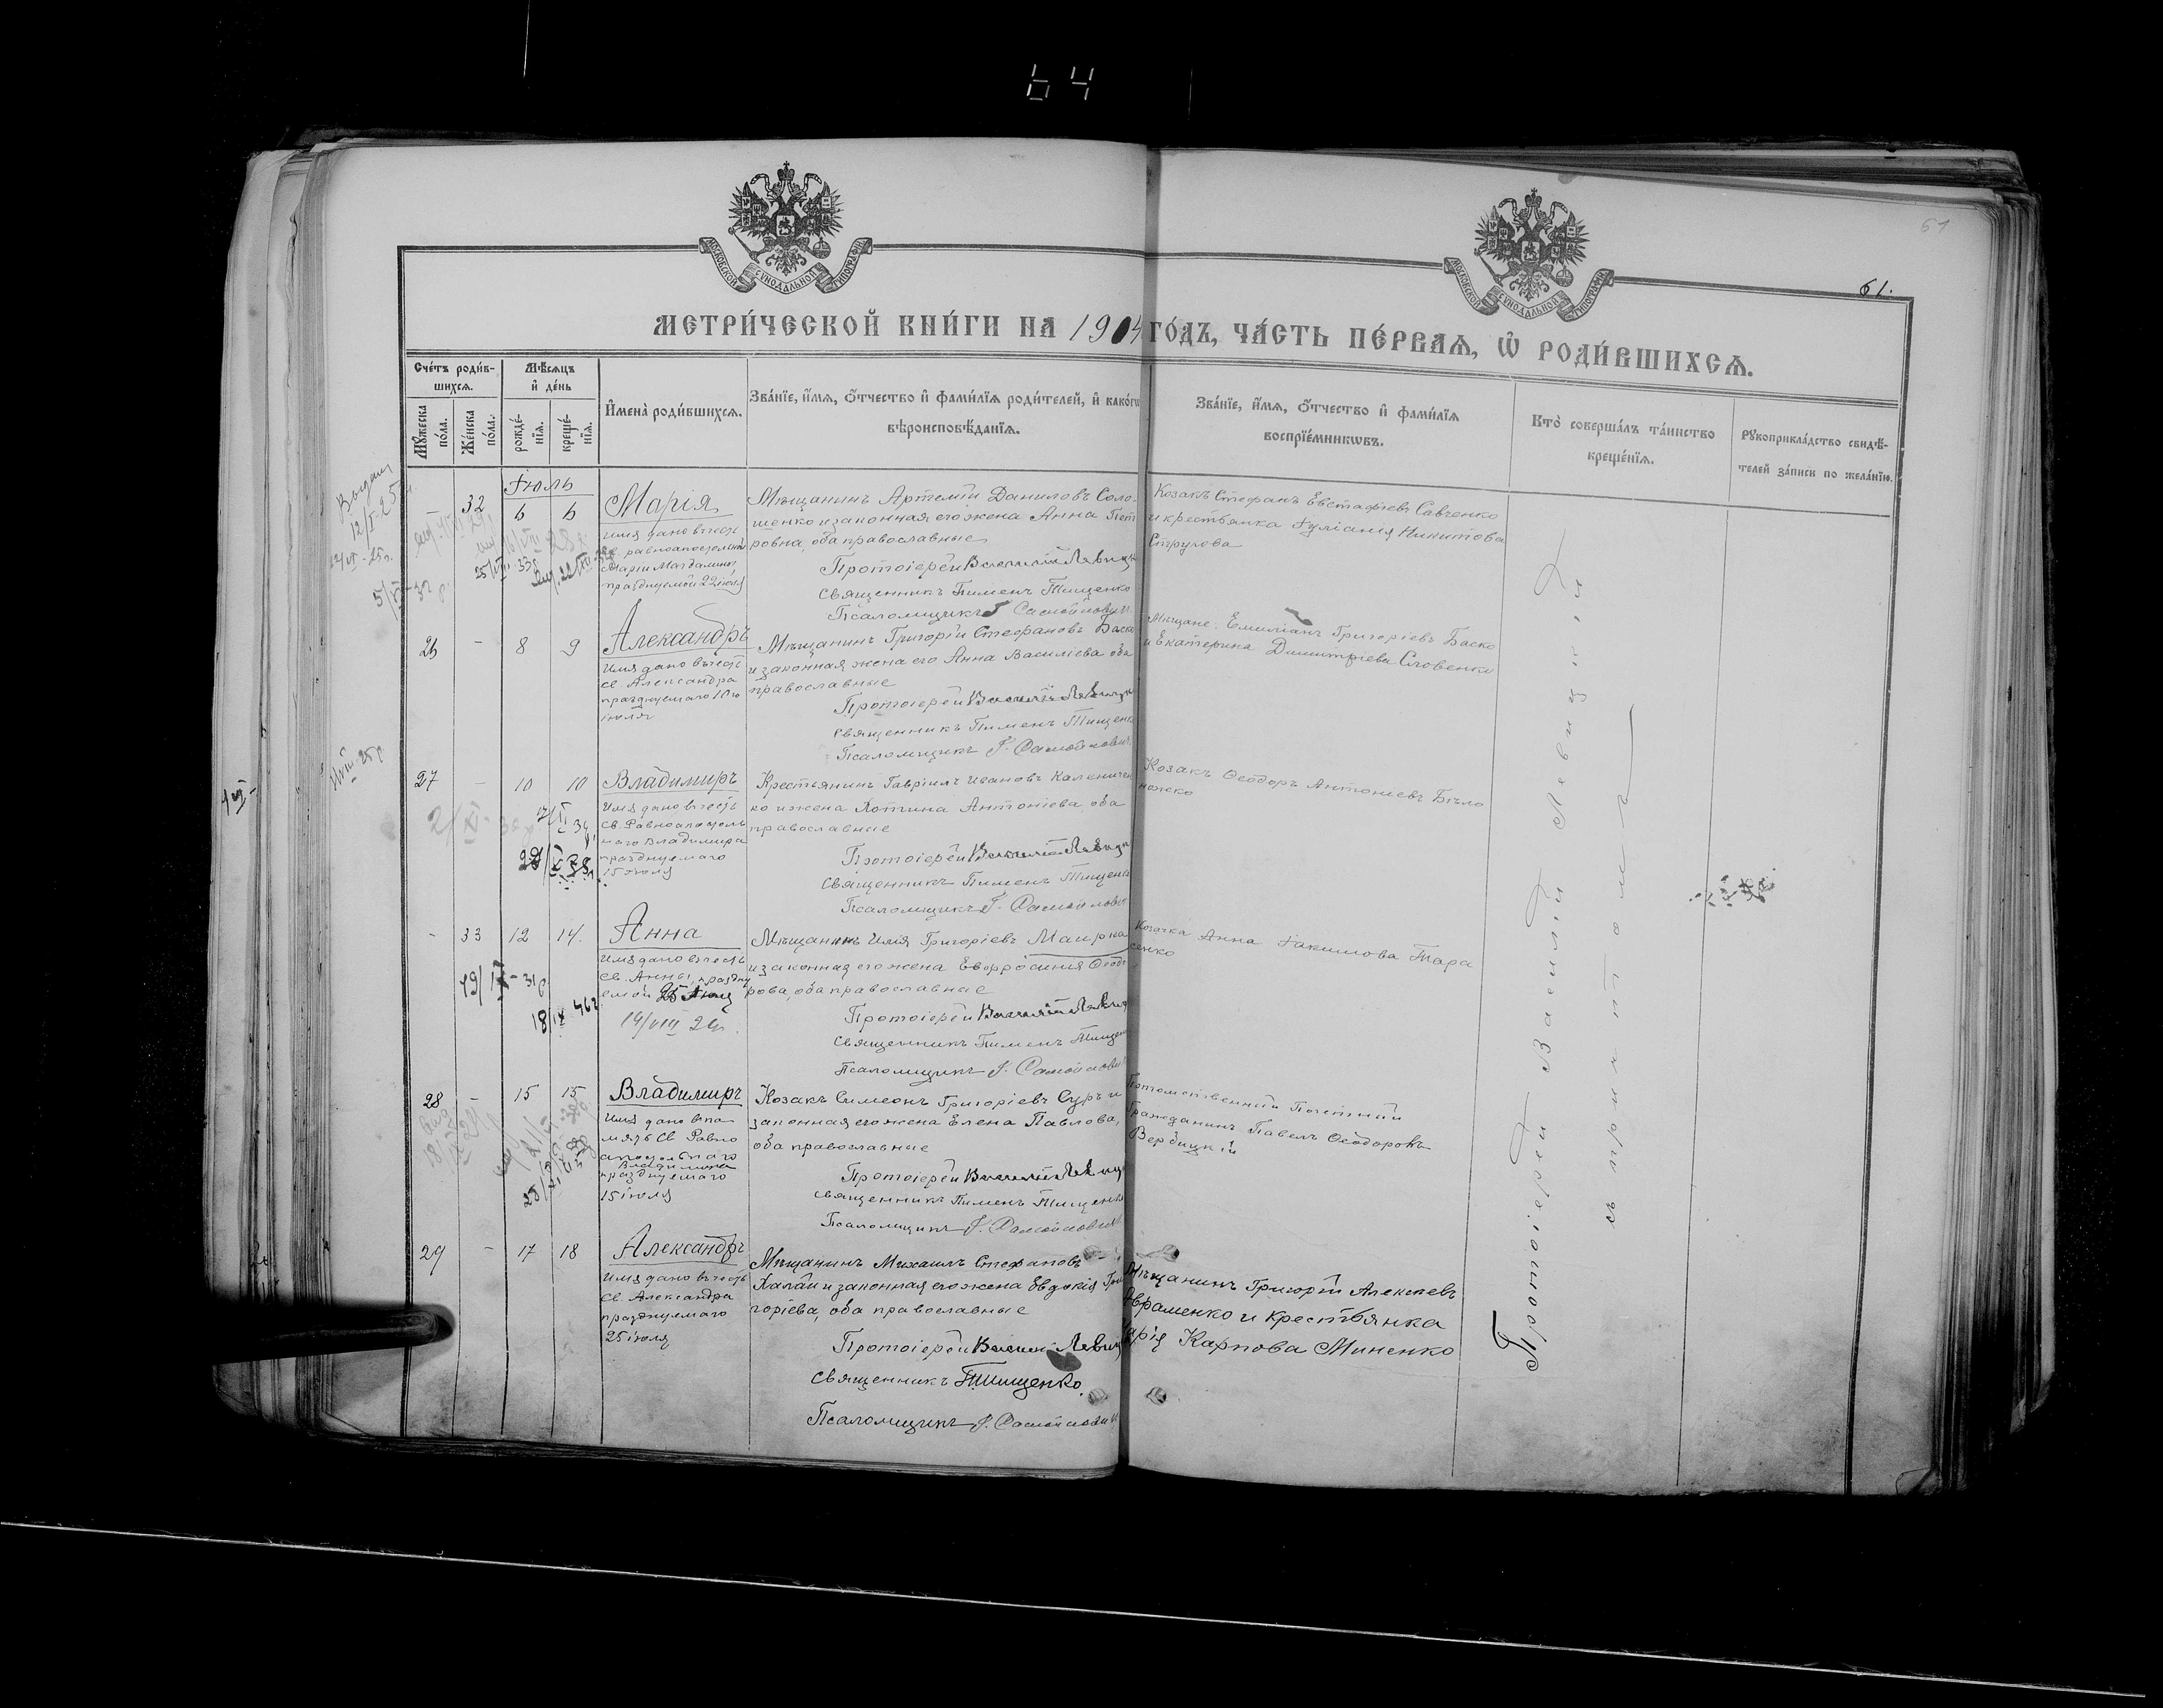 64
61
61.
МОСКОВСКОЙ СУНОДАЛЬНОЙ ТИПОГРАФІИ
МОСКОВСКОЙ СУНОДАЛЬНОЙ ТИПОГРАФІИ
МЕТРИ́ЧЕСКОЙ КНИ́ГИ НА 1904 ГО́ДЪ, ЧА́СТЬ ПЕ́РВАѦ, Ѡ҆ РОДИ́ВШИХСѦ.
Сче́тъ роди́в-
шихсѧ.
Мѣ́сѧцъ
и҆ де́нь
Мꙋ́жеска
по́ла.
Же́нска
по́ла.
рожде́-
нїѧ.
креще́-
нїѧ.
И҆мена̀ роди́вшихсѧ.
Зва́нїе, и҆́мѧ, ѻ҆́тчество и҆ фами́лїѧ роди́телей, и҆ како́гѡ
вѣроисповѣ́данїѧ.
Зва́нїе, и҆́мѧ, ѻ҆́тчество и҆ фами́лїѧ
воспрїе́мникѡвъ.
Кто̀ соверша́лъ та́инство
креще́нїѧ.
Рꙋкоприкла́дство свидѣ́-
телей за́писи по жела́нїю.
Іюль
- 32 6 6 Марія
имя дано въ честь
св. равноапостольной
Маріи Магдалины,
празднуемой 22 іюля
Мѣщанинъ Артемій Даниловъ Соло-
шенко и законная его жена Анна Пет
ровна, оба православные
Протоіерей Василій Левицк
Священникъ Пименъ Тищенко
Псаломщикъ Самойлович
Козакъ Стефанъ Евстафіевъ Савченко
и крестьянка Іуліанія Никитова
Струкова
26 - 8 9 Александръ
Имя дано въ честь
св. Александра
празднуемаго 10го
іюля
Мѣщанинъ Григорій Стефановъ Баско
и законная жена его Анна Василіева оба
православные
Протоіерей Василій Левицк
священникъ Пименъ Тищенк
Псаломщикъ Г. Самойлович
Мѣщане: Емиліанъ Григоріевъ Баско
и Екатерина Димитріева Словенко
27 - 10 10 Владиміръ
Имя дано въ честь
св. Равноапостоль
наго Владиміра
празднуемаго
15 іюля
Крестьянинъ Гавріилъ Ивановъ Каленичен
ко и жена Антоніева, оба
православные
Протоіерей Василій Левицк
Священникъ Пименъ Тищенк
Псаломщикъ Г. Самойлович
Козакъ Ѳеодоръ Антоніевъ Бѣло
ножко
- 33 12 14. Анна
Имя дано въ честь
св. Анны, праздну
емой 25 Іюля
19/VIII
Мѣщанинъ Илія Григоріевъ Маирка
и законная его жена Евфросинія Ѳеодо
рова, оба православные
Протоіерей Василій Левиц
Священникъ Пименъ Тищен
Псаломщикъ Г. Самойлович
Козачка Анна Іакимова Тара
сенко
28 - 15 15 Владиміръ
Имя дано въ па
мять св Равно
апостольнаго
Владиміра
празднуемаго
15 іюля
Козакъ Симеонъ Григоріевъ Суръ и
законная его жена Елена Павлова,
оба православные
Протоіерей Василій Левиц
священникъ Пименъ Тищенк
Псаломщикъ Г. Самойлович
Потомственный Почетный
Гражданинъ Павелъ Ѳеодоровъ
Вербицкій
29 - 17 18 Александръ
Имя дано въ честь
св. Александра
празднуемаго
25 іюля
Мѣщанинъ Михаилъ Стефановъ
Халай и законная его жена Евдокія Гри
горіева, оба православные
Протоіерей Василій Левиц
Священникъ Тищенко
Псаломщикъ Г. Самойлович
Мѣщанинъ Григорій Алексѣевъ
Авраменко и крестьянка
Марія Карпова Миненко
Протоіерей Василій Левицкій
съ причтомъ